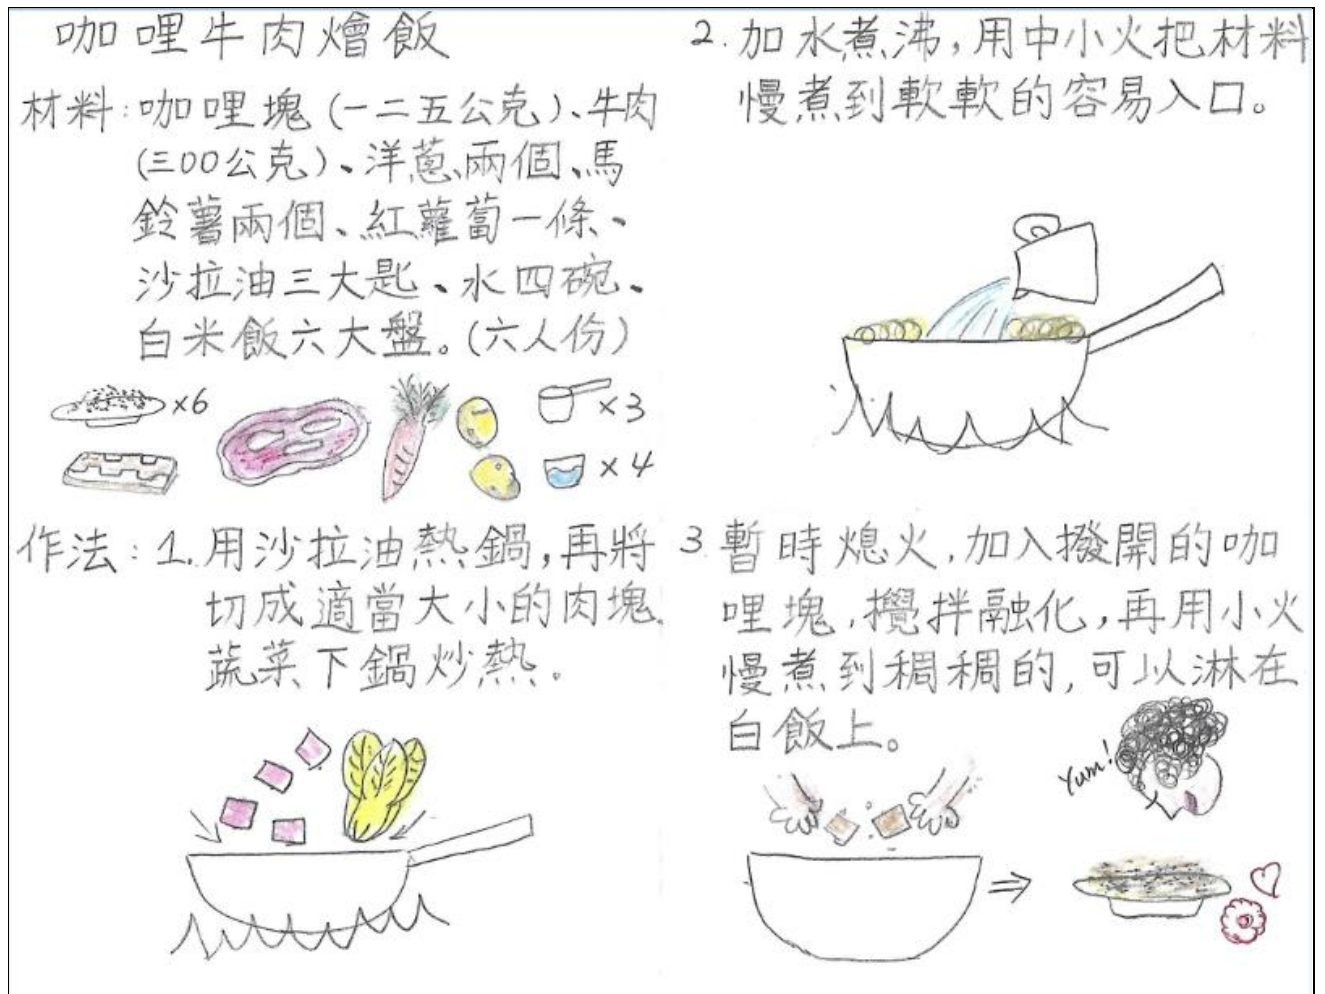 咖哩牛肉燴飯
材料:咖哩塊(一二五公克)、牛肉
(三00公克)、洋蔥、兩個、馬
鈴薯兩個、紅蘿蔔一條、
沙拉油三大匙、水四碗、
白米飯六大盤。(六人份)
×6
×3
×4
作法:1.用沙拉油熱鍋,再將
切成適當大小的肉塊、
蔬菜下鍋炒熱。
2.加水煮沸,用中小火把材料
慢煮到軟軟的容易入口。
3.暫時熄火,加入撥開的咖
哩塊,攪拌融化,再用小火
慢煮到稠稠的,可以淋在
白飯上。
Yum!